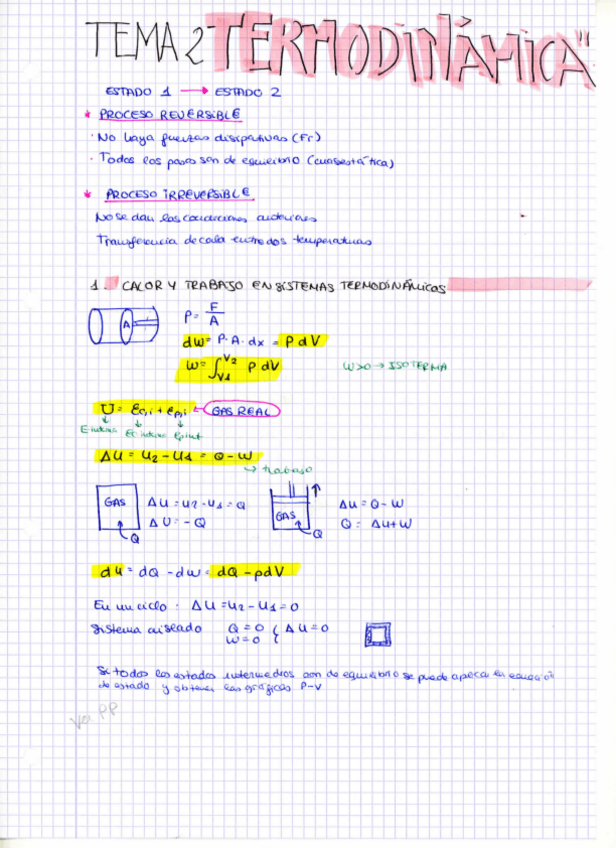 TEMA 2 "TERMODINÁMICA"
ESTADO 1 → ESTADO 2
* PROCESO REVERSIBLE
· No haya fuerzas disipativas (Fr)
· Todos los pasos son de equilibrio (cuasiestática)
* PROCESO IRREVERSIBLE
No se dan las condiciones anteriores
Transferencia de calor entre dos temperaturas
1. CALOR Y TRABAJO EN SISTEMAS TERMODINÁMICOS
A
P = F/A
dw = P·A·dx = P dV
W = ∫V1 V2 P dV W>0 → ISOTERMA
U = Ec,i + Ep,i ← GAS REAL
E interna Ec interna Ep int
ΔU = U2 - U1 = Q - W
→ trabajo
GAS Q ΔU = U2 - U1 = Q
ΔU = -Q
GAS Q ΔU = Q - W
Q = ΔU + W
dU = dQ - dw = dQ - pdV
En un ciclo: ΔU = U2 - U1 = 0
Sistema aislado Q = 0 W = 0 { ΔU = 0
Si todos los estados intermedios son de equilibrio se puede aplicar la ecuación
de estado y obtener las gráficas P-V